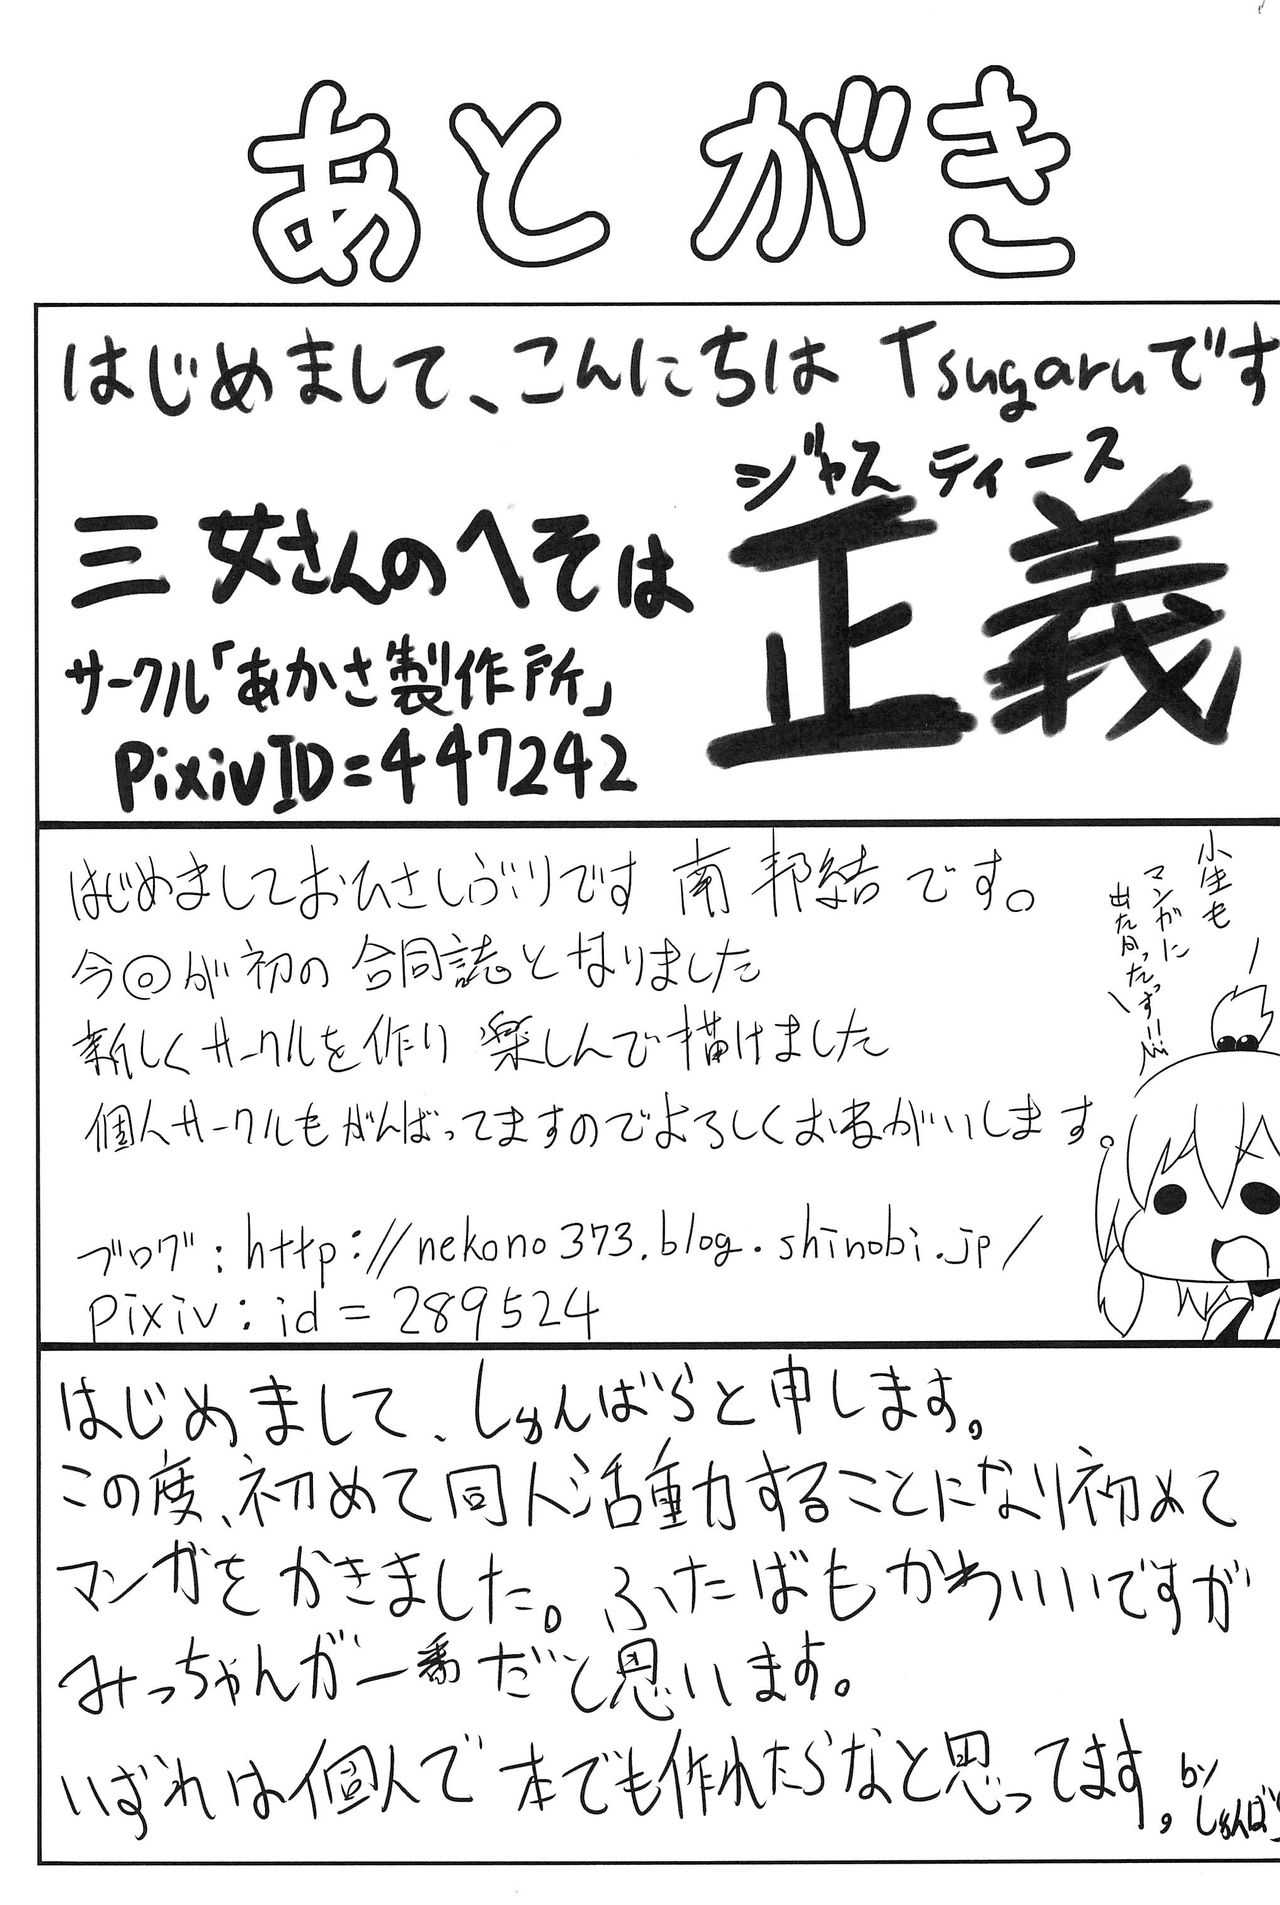 あとがき
はじめまして、こんにちは Tsugaruです
ジャスティース
三女さんのへそは正義
サークル「あかさ製作所」
PixivID=447242
はじめましておひさしぶりです 南 邦結 です。
今@が初の 合同誌となりました
新しくサークルを作り 楽しんで描けました
個人サークルもがんばってますのでよろしくおねがいします。
ブログ:http://nekono373.blog.shinobi.jp/
pixiv:id=289524
小生も
マンガに
出たかったっす!!
はじめまして、しゅんばらと申します。
この度、初めて同人活動することになり初めて
マンガをかきました。ふたばもかわいいですが
みっちゃんが一番だと思います。
いずれは個人で本でも作れたらなと思ってます。
by
しゅんばら